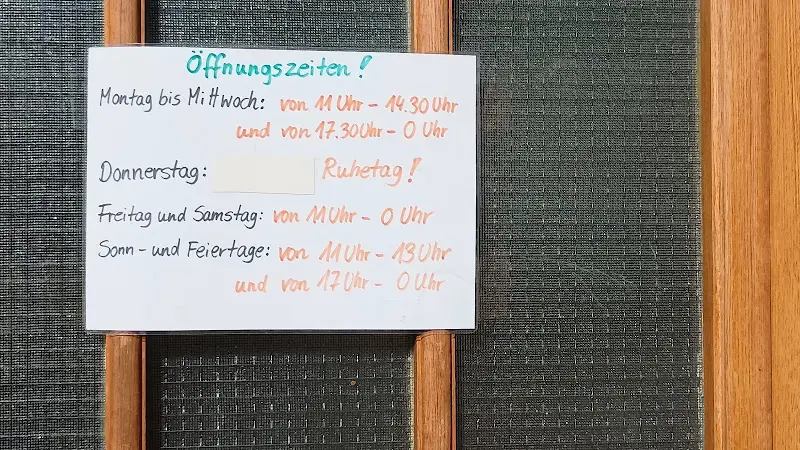 Öffnungszeiten!
Montag bis Mittwoch: von 11 Uhr - 14.30 Uhr
und von 17.30 Uhr - 0 Uhr
Donnerstag: Ruhetag!
Freitag und Samstag: von 11 Uhr - 0 Uhr
Sonn- und Feiertage: von 11 Uhr - 13 Uhr
und von 17 Uhr - 0 Uhr